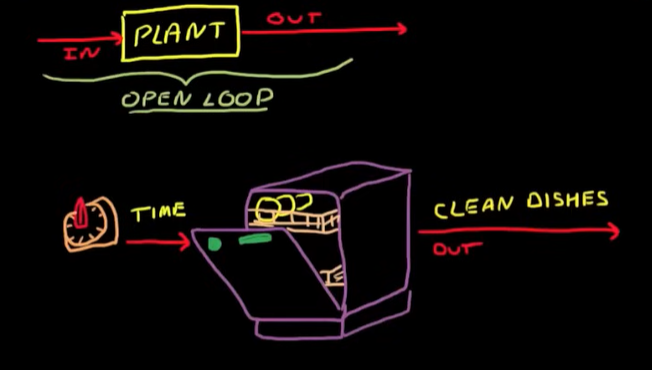 OUT
PLANT
IN
OPEN LOOP
TIME
CLEAN DISHES
OUT